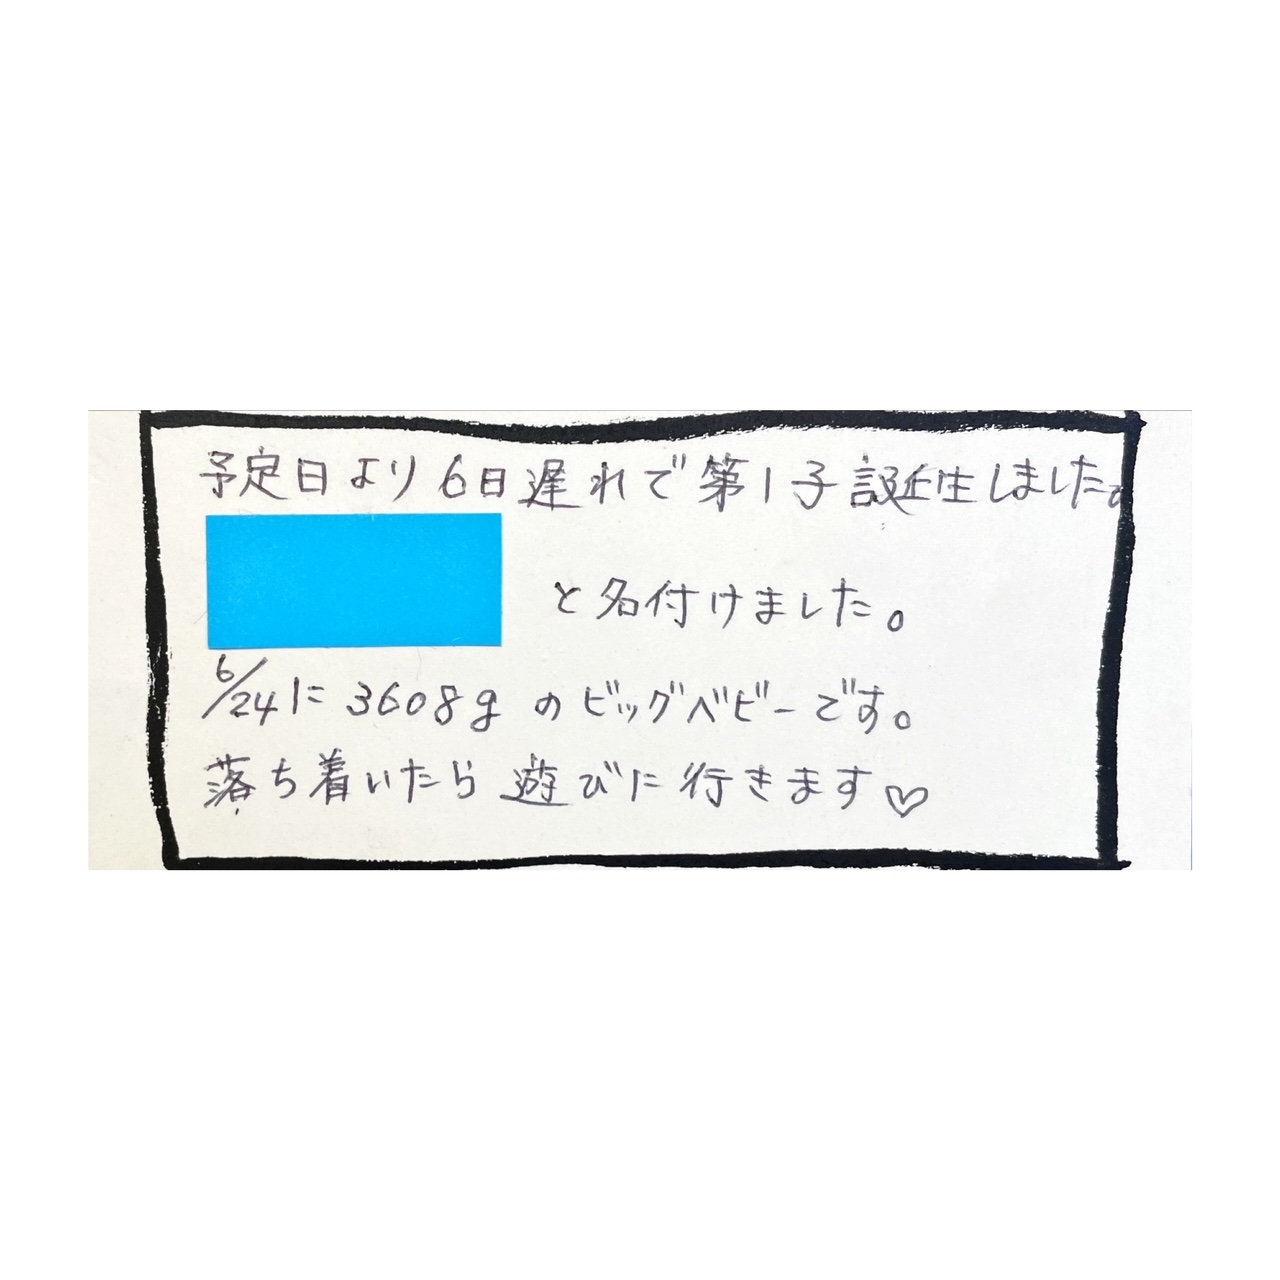 予定日より6日遅れで第1子誕生しました。
と名付けました。
6/24に3608gのビッグベビーです。
落ち着いたら遊びに行きます♡